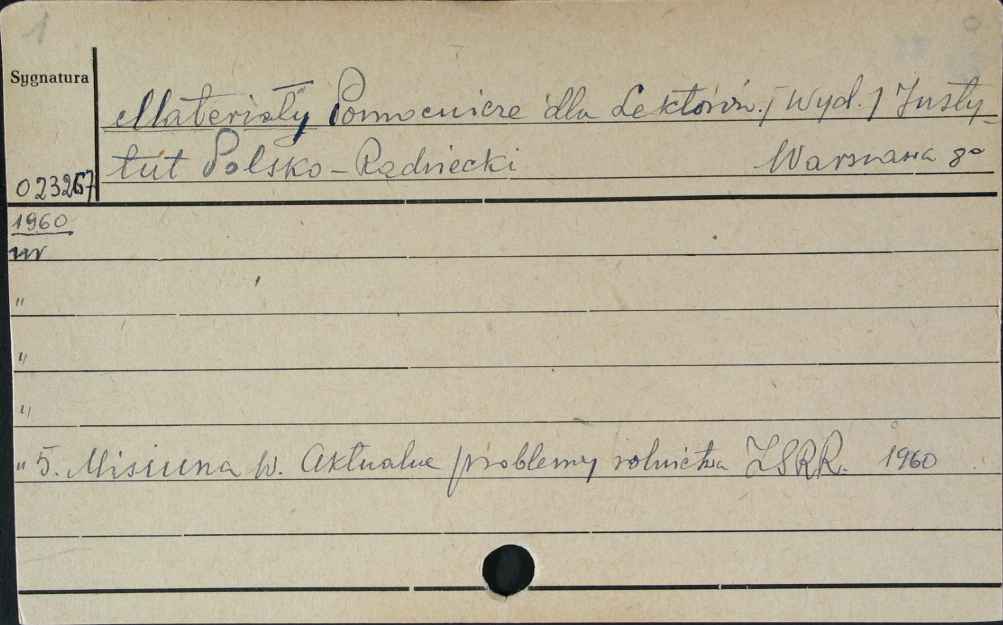 1
Sygnatura
Materiały Pomocnicze dla Lektorów. / Wyd. / Insty-
tut Polsko-Radziecki Warszawa 8°
023267
1960
nr
"
"
"
" 5. Misiuna W. Aktualne problemy rolnictwa ZSRR. 1960